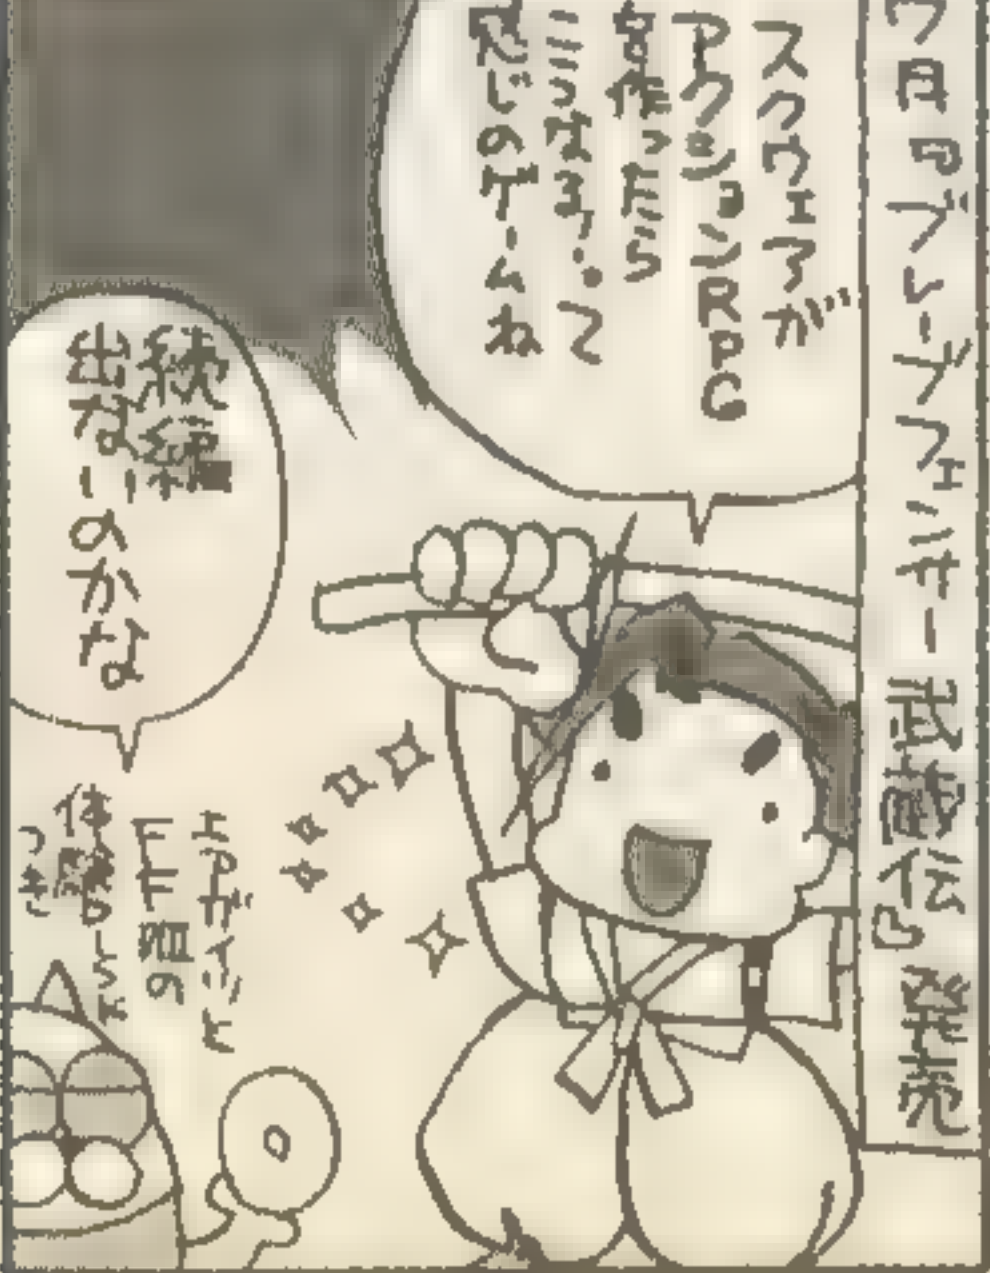 月 日 ブレーブフェンサー武蔵伝』発売
スクウェアが
アクションRPG
作ったら
こうなる、って
感じのゲームね
続編
出ないのかな
エアガイツと
FF
体験
つき